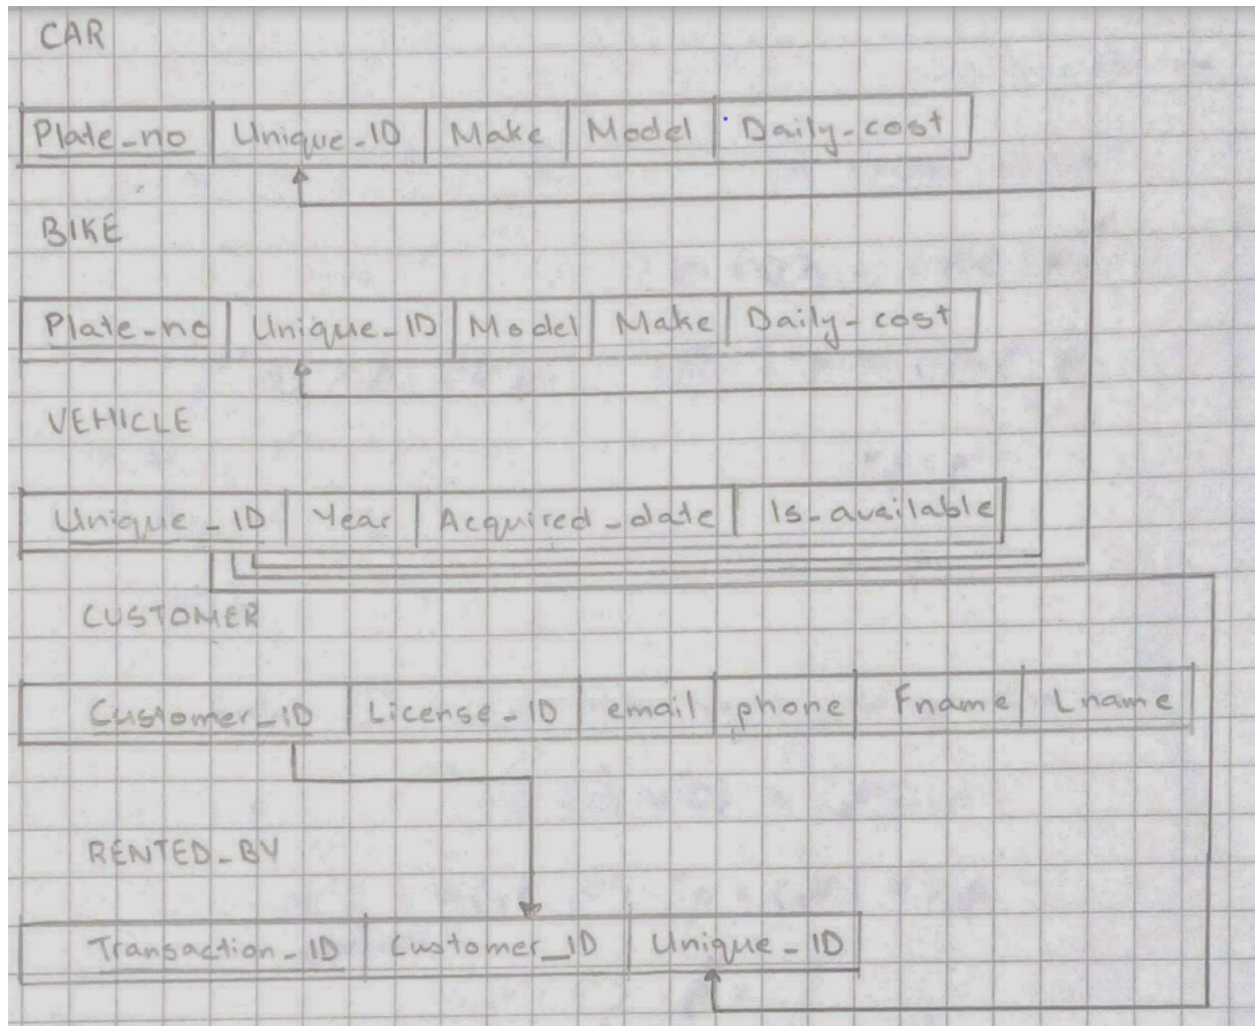 CAR
Plate_no Unique_ID Make Model Daily_cost
BIKE
Plate_no Unique_ID Model Make Daily_cost
VEHICLE
Unique_ID Year Acquired_date Is_available
CUSTOMER
Customer_ID License_ID email phone Fname Lname
RENTED_BY
Transaction_ID Customer_ID Unique_ID